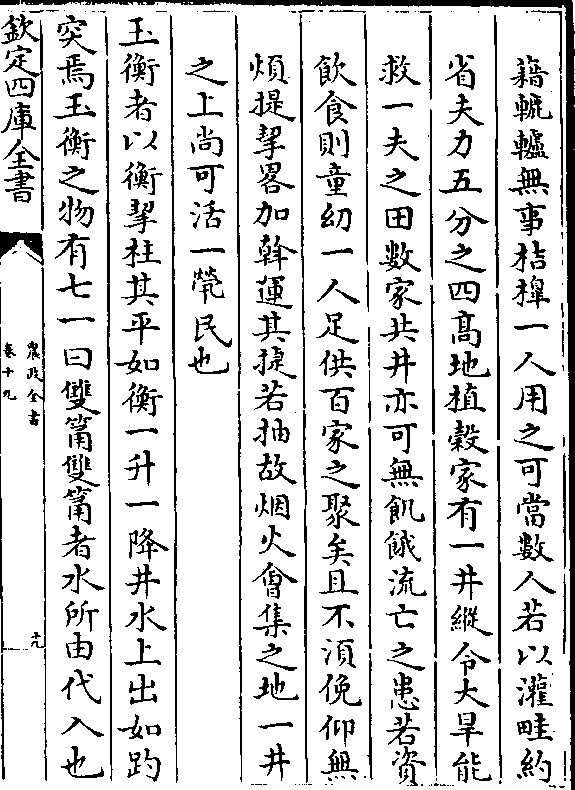 藉轆轤無事桔槹一人用之可當數人若以灌畦約
省夫力五分之四髙地植榖家有一井縱令大旱能
救一夫之田數家共井亦可無飢餓流亡之患若資
飲食則童幼一人足供百家之聚矣且不湏俛仰無
煩提挈畧加斡運其捷若抽故烟火㑹集之地一井
之上尚可活一煢民也
玉衡者以衡挈柱其平如衡一升一降井水上出如趵
突焉玉衡之物有七一曰雙筩雙筩者水所由代入也
欽定四庫全書
農政全書
卷十九
十九